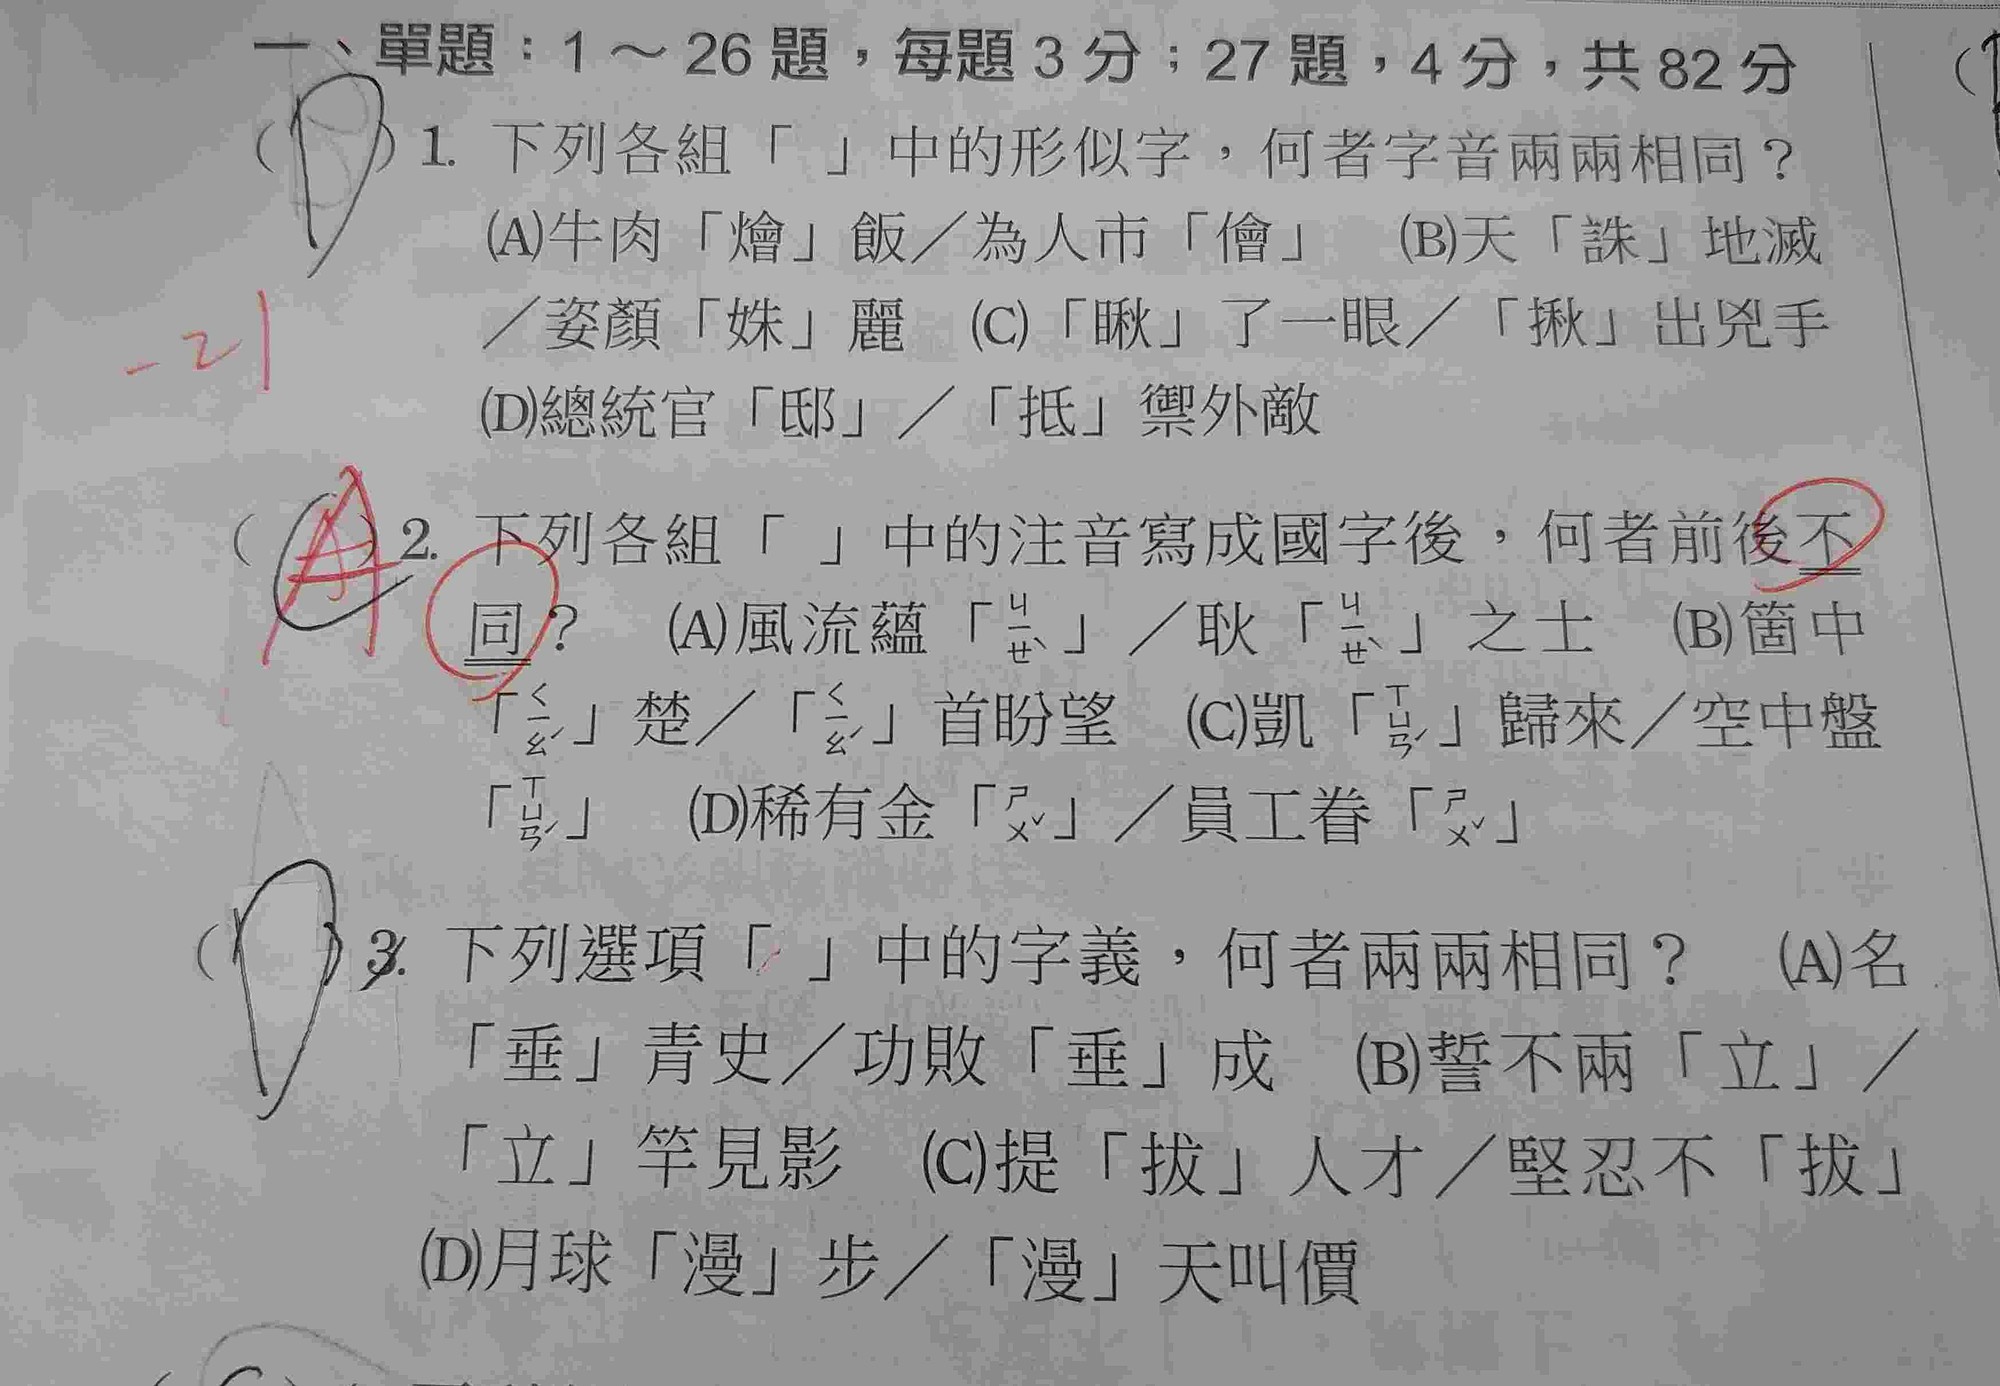 一、單題：1～26題，每題3分；27題，4分，共82分
(D)1. 下列各組「 」中的形似字，何者字音兩兩相同？
(A)牛肉「燴」飯／為人市「儈」 (B)天「誅」地滅
／姿顏「姝」麗 (C)「瞅」了一眼／「揪」出兇手
-21
(D)總統官「邸」／「抵」禦外敵
(A)2. 下列各組「 」中的注音寫成國字後，何者前後不
同？ (A)風流蘊「ㄐㄧㄝˋ」／耿「ㄐㄧㄝˋ」之士 (B)箇中
「ㄑㄧㄠˊ」楚／「ㄑㄧㄠˊ」首盼望 (C)凱「ㄒㄩㄢˊ」歸來／空中盤
「ㄒㄩㄢˊ」 (D)稀有金「ㄕㄨˇ」／員工眷「ㄕㄨˇ」
(D)3. 下列選項「 」中的字義，何者兩兩相同？ (A)名
「垂」青史／功敗「垂」成 (B)誓不兩「立」／
「立」竿見影 (C)提「拔」人才／堅忍不「拔」
(D)月球「漫」步／「漫」天叫價